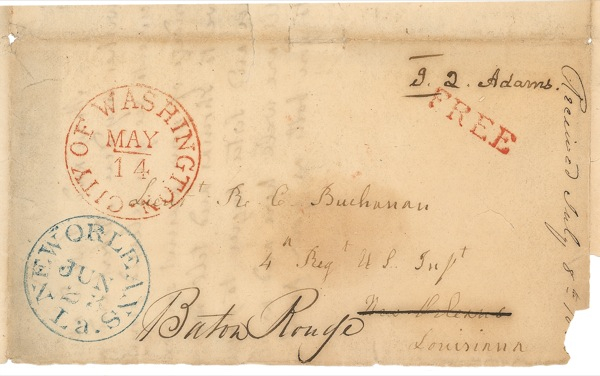 J. Q. Adams.
FREE
CITY OF WASHINGTON
MAY
14
Lieut R. C. Buchanan
4th Regt U S. Inft
NEW ORLEANS
JUN
La.
Baton Rouge
New Orleans
Louisiana
Received July 8th